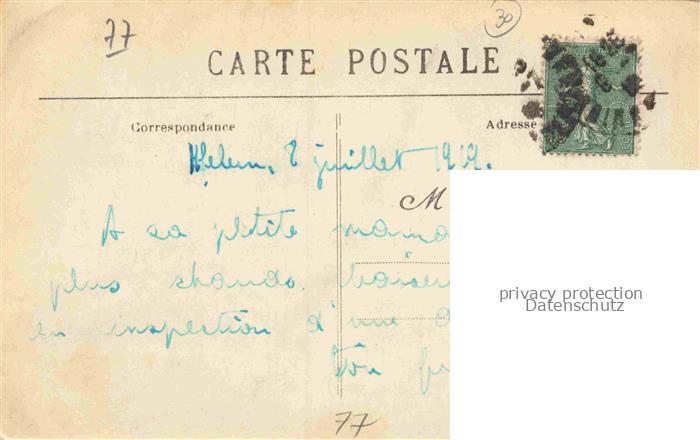 77
30
CARTE POSTALE
Correspondance
Adresse
Melun, 8 juillet 1919.
M
A sa petite mama
plus chauds baiser
en inspection d'une
Ton
privacy protection
Datenschutz
77